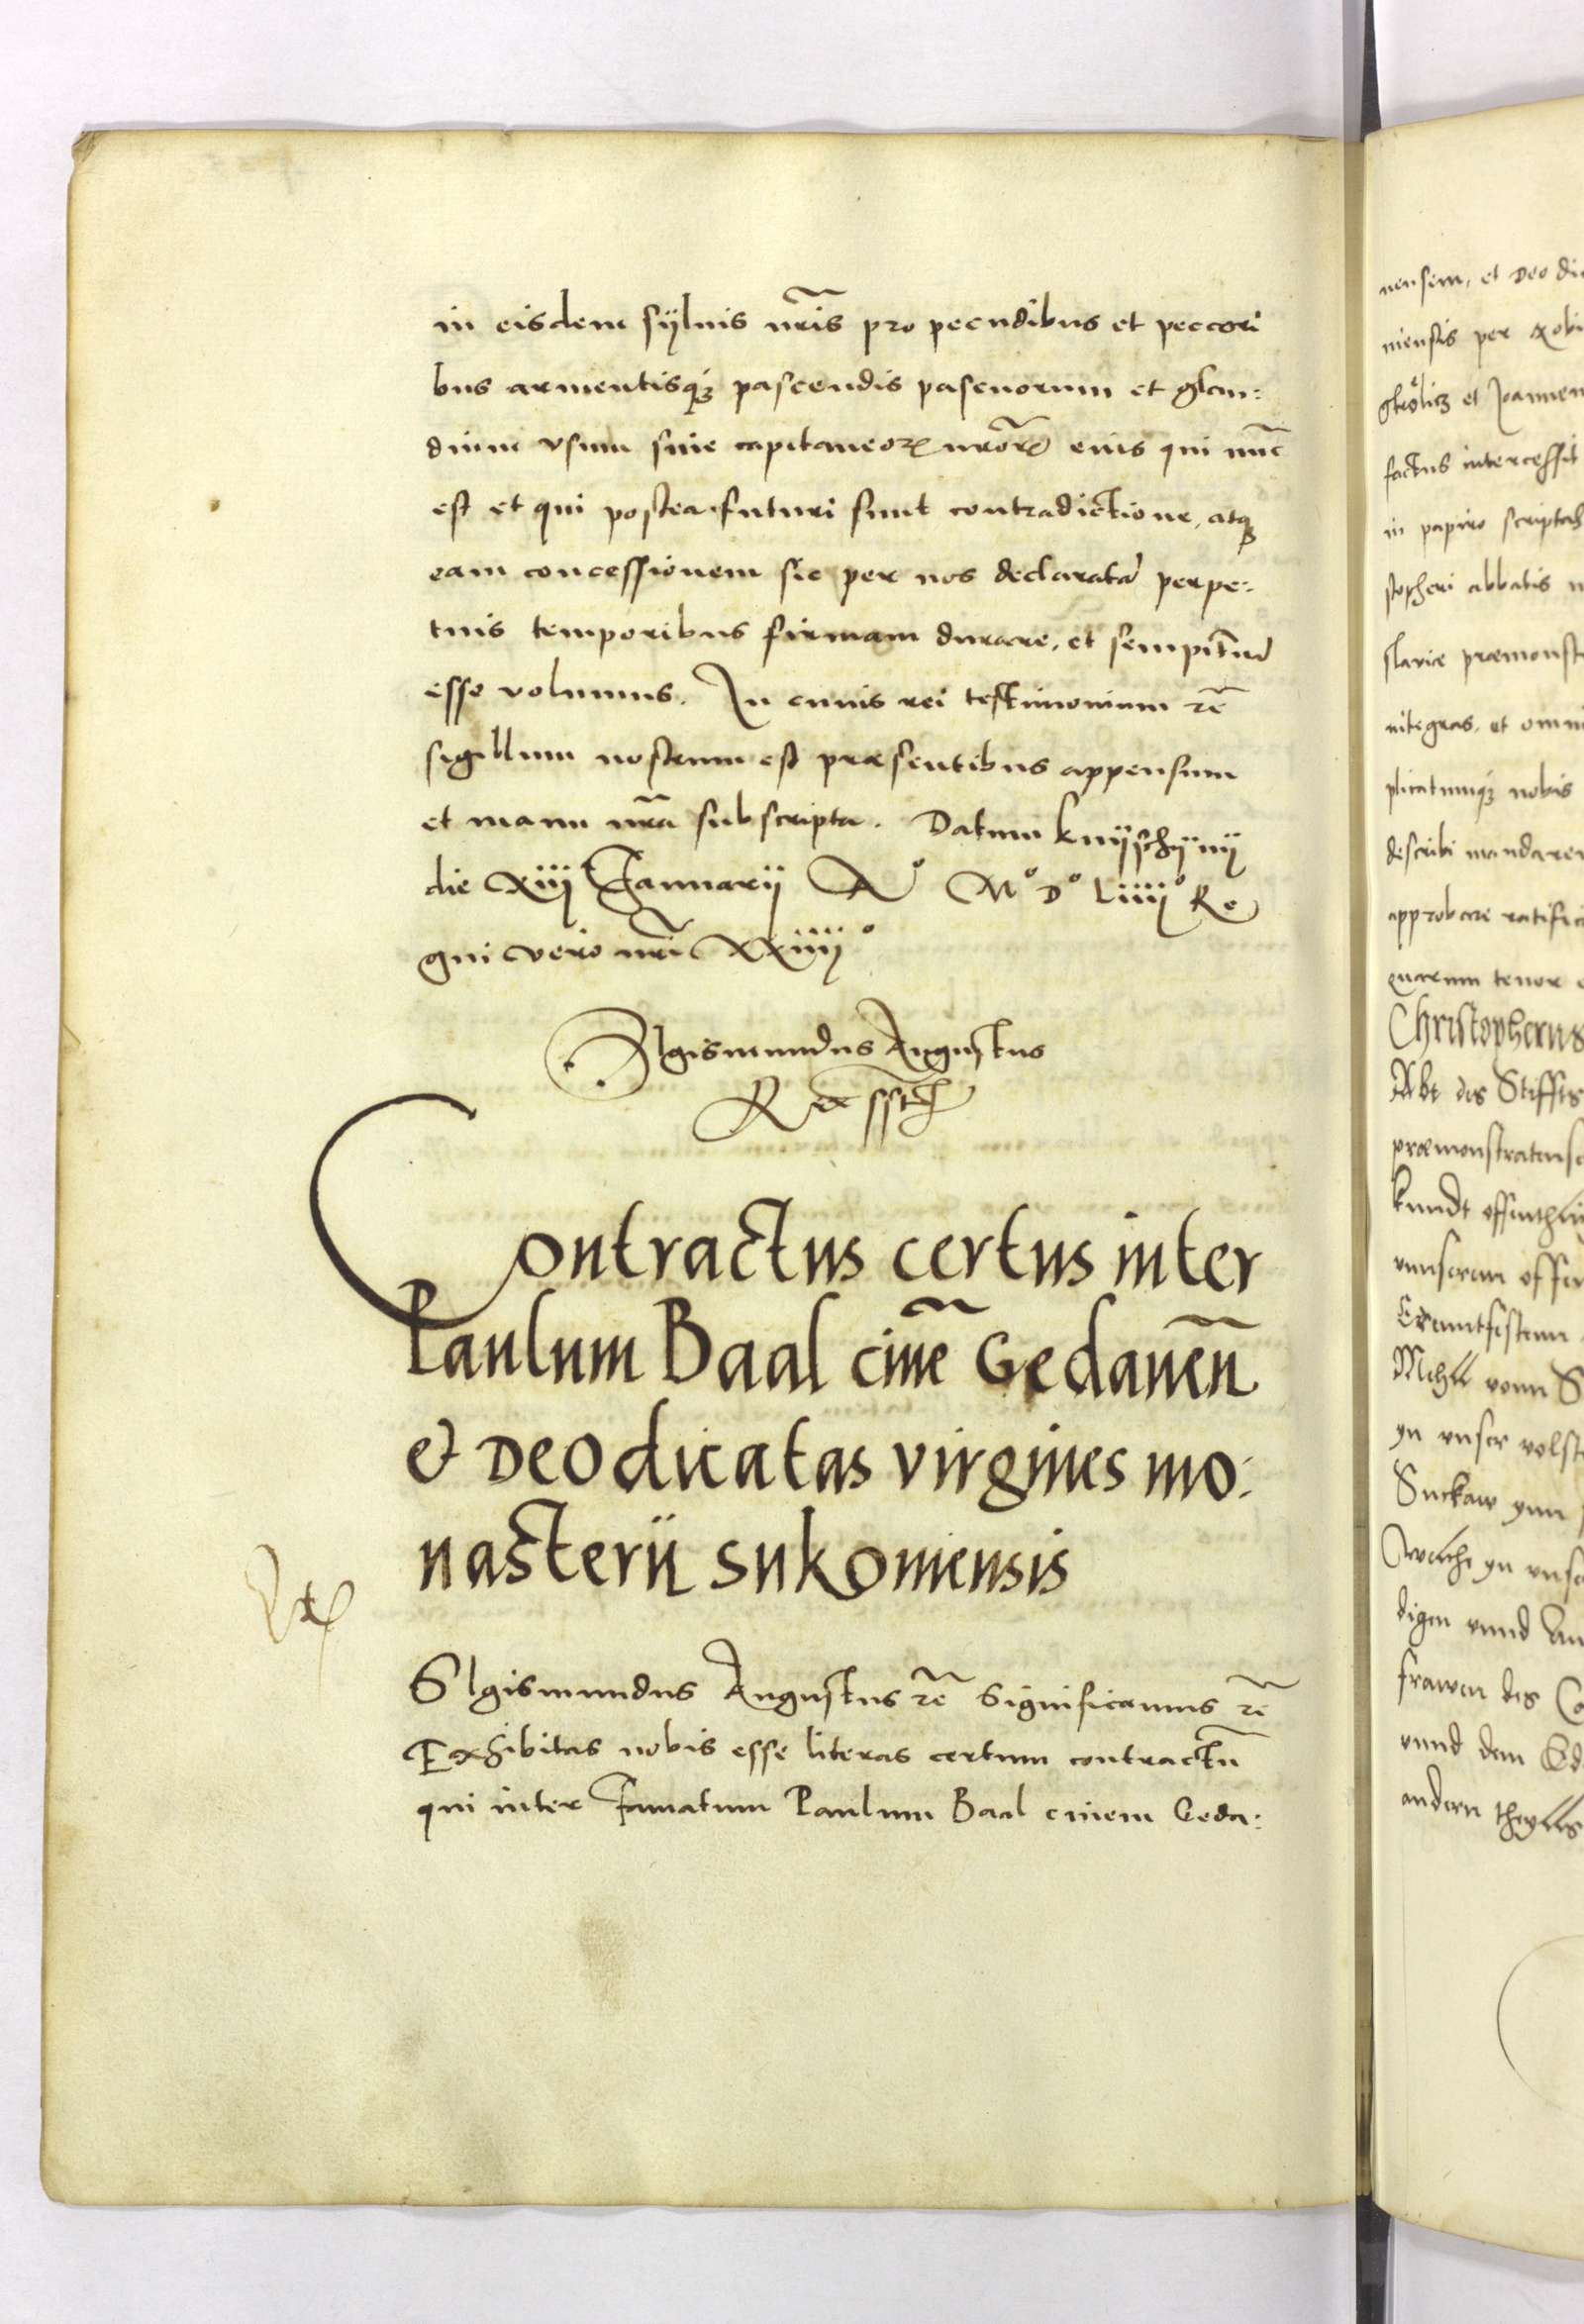 in eisdem sylvis nr̃is pro pecudibus et peccori
bus armentisqꝫ pascendis pascuorum et glan:
dium usum sine capitaneoꝝ nr̃oꝝ eius qui nũc
est et qui postea futuri sunt contradictione, atqꝫ
eam concessionem sic per nos declaratã perpe:
tuis temporibus firmam durare, et sempit̃nã
esse volumus. In cuius rei testimonium rẽ
sigillum nostrum est præsentibus appensum
et manu nr̃a subscripta. Datum Knÿschÿnÿ
die xiiij Januarij A° M° D° Liiij° Re
gni vero nr̃i xxiiij°
SIgismundus Augustus
Rex sst
Contractus certus inter
Paulum Baal civẽ Gedaneñ
et Deo dicatas virgines mo:
nasterij sukoviensis
SIgismundus Augustus rẽ Significamus rẽ
Exhibitas nobis esse literas certum contractũ
qui inter Famatum Paulum Baal civem Geda:
nensem, et Deo di
niensis per
et Joannem
factus intercessit
in papiro script
stopheri abbatis
slaviæ præmonst
integras, et omni
plicatumqꝫ nobis
describi mandare
approbare ratifi
quarum tenor
Christopherus
Abt des Stiffts
præmonstratens
kundt offent
unserem offe
yn unser
Suckaw ynn
Welche yn uns
digen unnd
frawen des
unnd dem
andern theylls